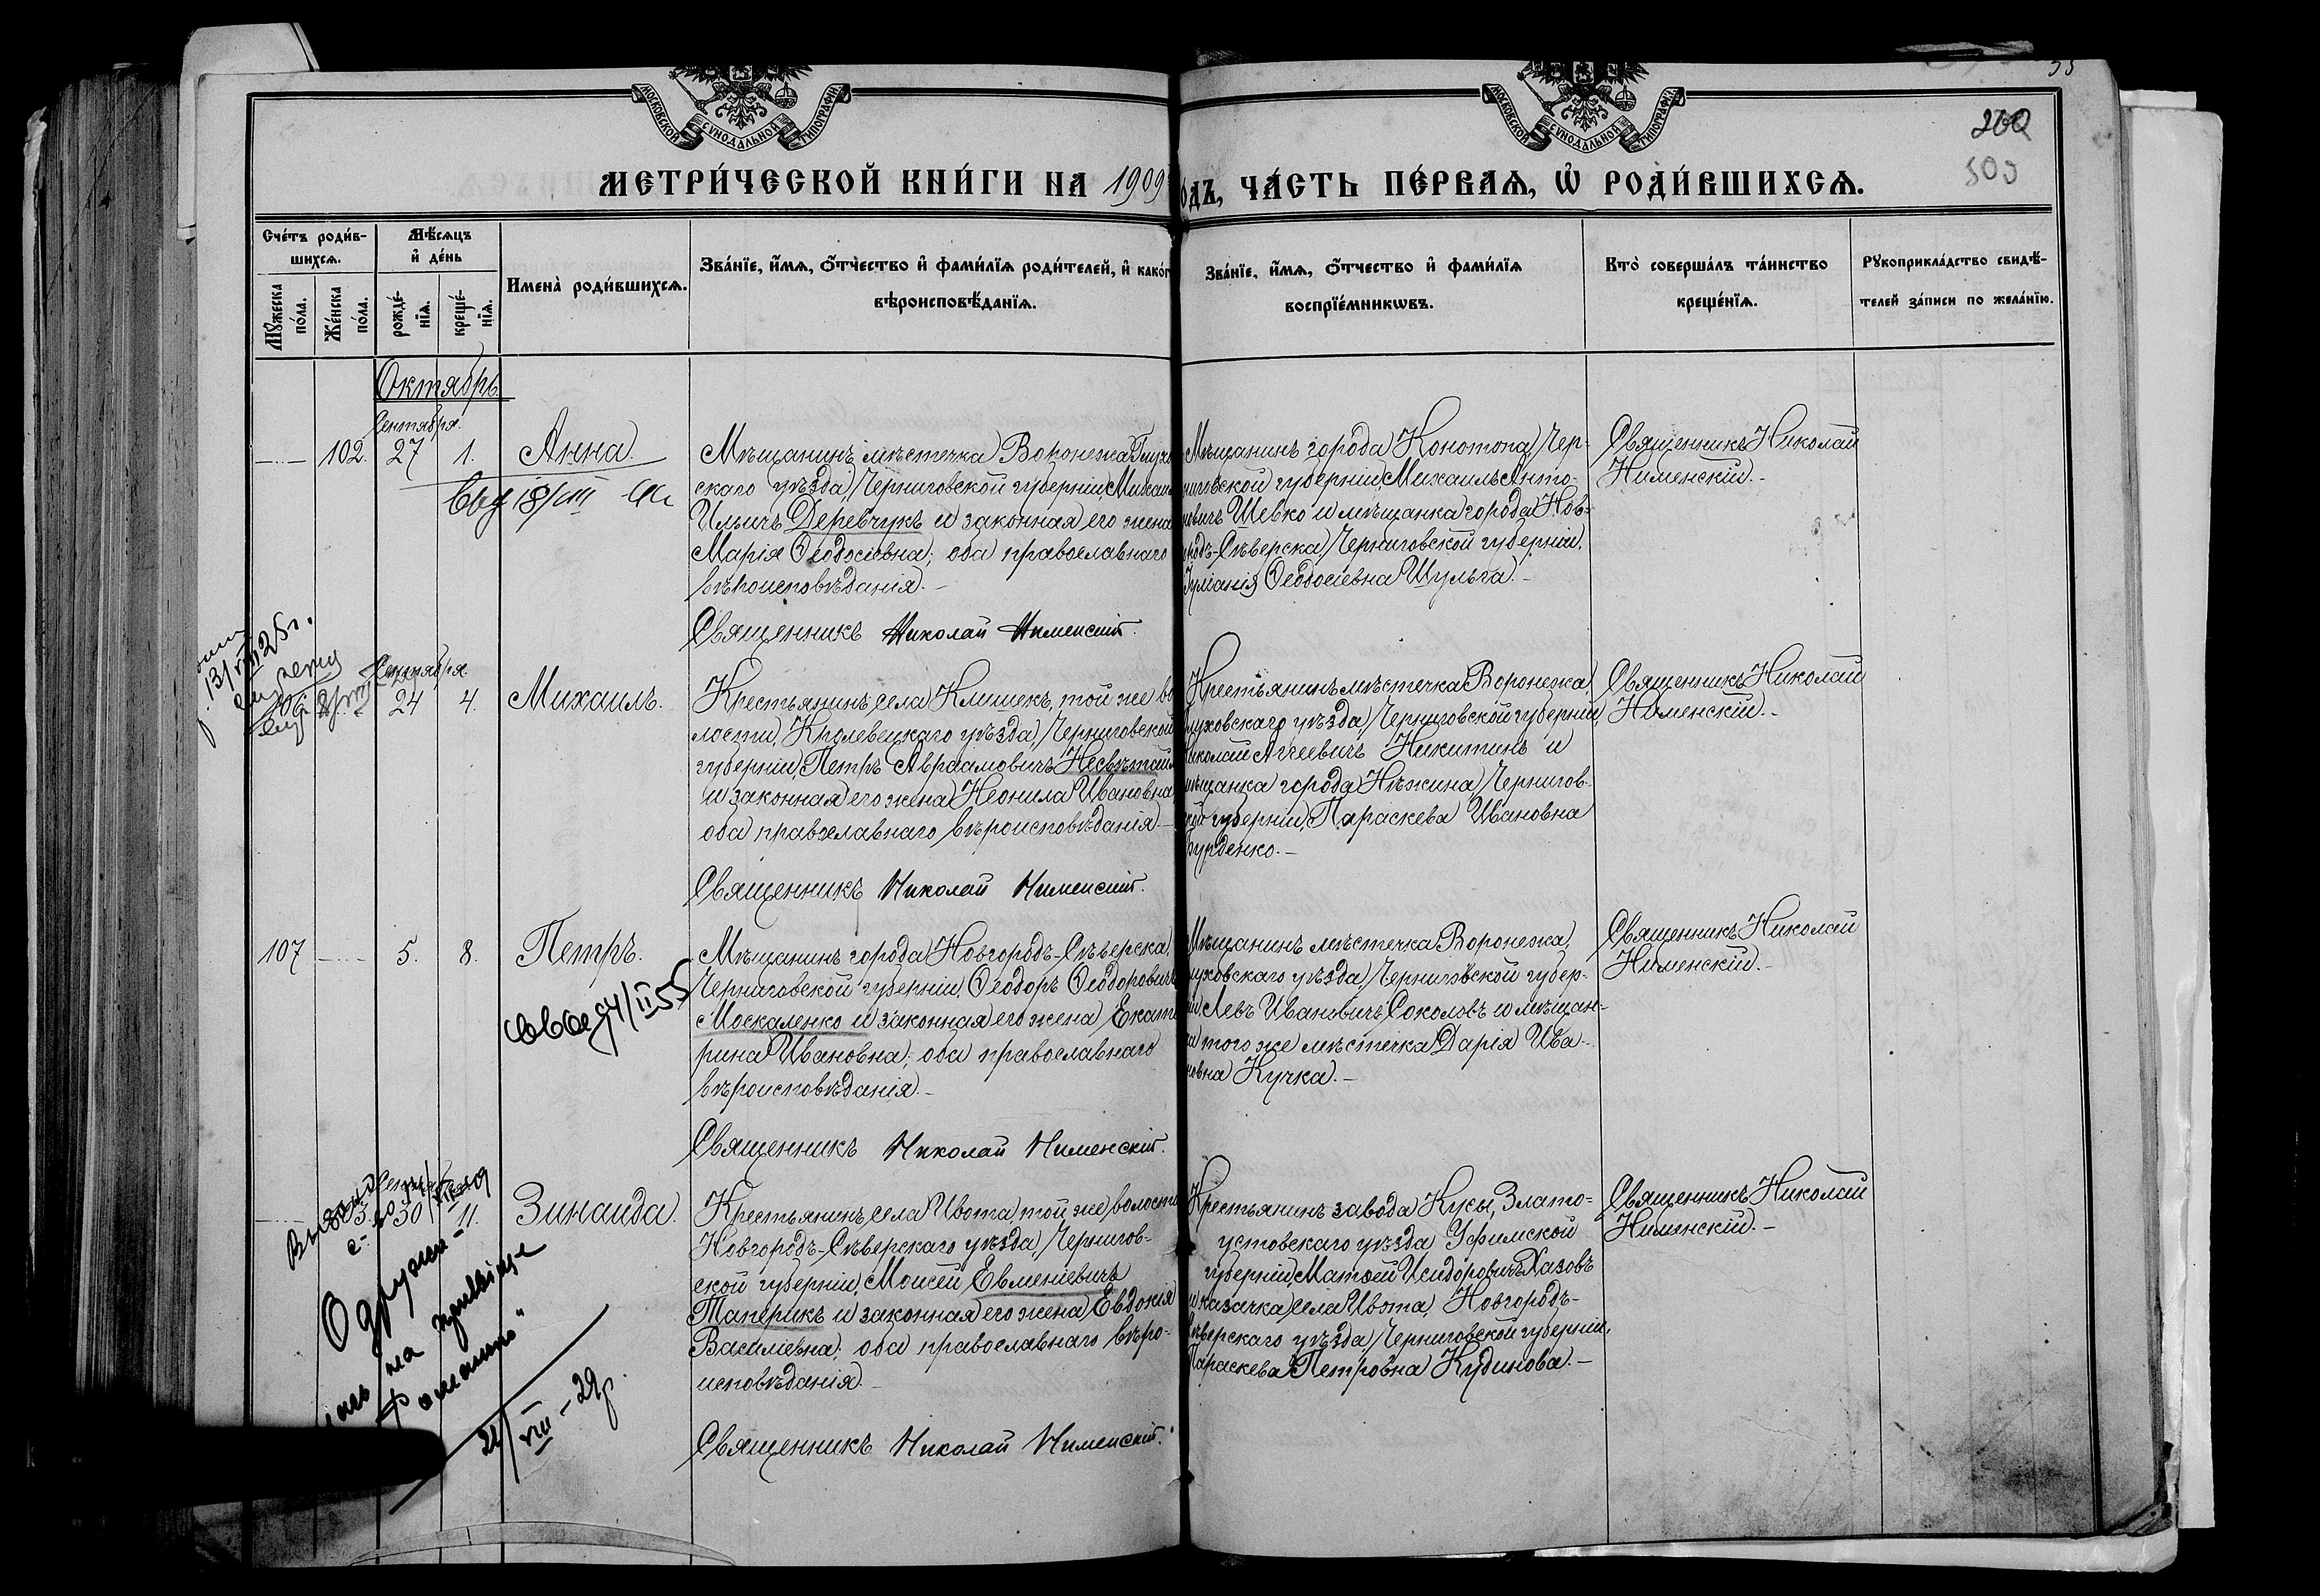 МОСКОВСКОЙ СУНОДАЛЬНОЙ ТИПОГРАФІИ
МОСКОВСКОЙ СУНОДАЛЬНОЙ ТИПОГРАФІИ
МЕТРИ́ЧЕСКОЙ КНИ́ГИ НА 1909
ОДЪ, ЧА́СТЬ ПЕ́РВАѦ, Ѡ҆ РОДИ́ВШИХСѦ.
200
503
Сче́тъ роди́в-
шихсѧ.
Мꙋ́жеска по́ла.
Же́нска по́ла.
Мѣ́сѧцъ
и҆ де́нь
рожде́-
нїѧ.
креще́-
нїѧ.
Имена̀ роди́вшихсѧ.
Зва́нїе, и҆́мѧ, ѻ҆́тчество и҆ фами́лїѧ роди́телей, и҆ како́г
вѣроисповѣ́данїѧ.
Зва́нїе, и҆́мѧ, ѻ҆́тчество и҆ фами́лїѧ
воспрїе́мникѡвъ.
Кто̀ соверша́лъ та́инство
креще́нїѧ.
Рꙋкоприкла́дство свидѣ́-
телей за́писи по жела́нїю.
Октябрь
Сентября.
102. 27 1. Анна.
Мѣщанинъ мѣстечка Воронежа Глухов
скаго уѣзда, Черниговской губерніи, Михаил
Ильичъ Деревчукъ и законная его жена
Марія Ѳеодосіевна; оба православнаго
вѣроисповѣданія.-
Священникъ Николай Нименскій.
Мѣщанинъ города Конотопа, Чер-
ниговской губерніи, Михаилъ Анто-
новичъ Шевко и мѣщанка города Нов-
родъ-Сѣверска, Черниговской губерніи,
Іуліанія Ѳеодосіевна Шульга.-
Священникъ Николай
Нименскій.-
Сентября.
24 4. Михаилъ.
Крестьянинъ села Клишекъ, той же во
лости, Кролевецкаго уѣзда, Черниговской
губерніи, Петръ Авраамовичъ Несвѣтай
и законная его жена Неонила Ивановна
оба православнаго вѣроисповѣданія-
Священникъ Николай Нименскій.
Крестьянинъ мѣстечка Воронежа
луховскаго уѣзда, Черниговской губерніи,
Николай Аггеевичъ Никитинъ и
мѣщанка города Нѣжина, Чернигов-
кой губерніи, Параскева Ивановна
Бурденко.-
Священникъ Николай
Нименскій.-
107 5. 8. Петръ.
Мѣщанинъ города Новгородъ-Сѣверска,
Черниговской губерніи, Ѳеодоръ Ѳеодоровичъ
Москаленко и законная его жена Екате
рина Ивановна; оба православнаго
вѣроисповѣданія.-
Священникъ Николай Нименскій.
Мѣщанинъ мѣстечка Воронежа,
луховскаго уѣзда, Черниговской губер-
ніи Левъ Ивановичъ Соколовъ и мѣщан-
ка того же мѣстечка Дарія Ива-
новна Кучка.-
Священникъ Николай
Нименскій.-
30 11. Зинаида.
Крестьянинъ села Ивота, той же волости
Новгородъ-Сѣверскаго уѣзда, Чернигов-
ской губерніи, Моисей Евменіевичъ
Таперикъ и законная его жена Евдокія
Васильевна; оба православнаго вѣро-
исповѣданія.-
Священникъ Николай Нименскій.
Крестьянинъ завода Кусы, Злато-
устовскаго уѣзда Уфимской
губерніи, Матѳей Исидоровичъ Хазовъ
и казачка села Ивота, Новгородъ-
Сѣверскаго уѣзда, Черниговской губерніи,
Параскева Петровна Кудинова.-
Священникъ Николай
Нименскій.-